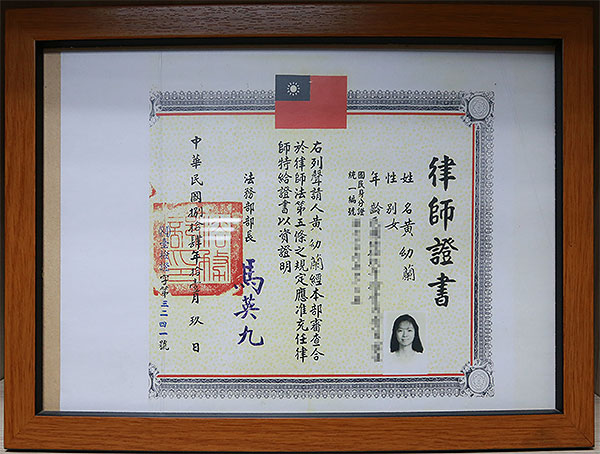 律師證書
姓名黃幼蘭
性別女
年齡
國民身分證
統一編號
右列聲請人黃幼蘭經本部審查合
於律師法第五條之規定應准充任律
師特給證書以資證明
法務部部長
馬英九
中華民國捌拾肆年拾壹月玖日
字第三二四一號